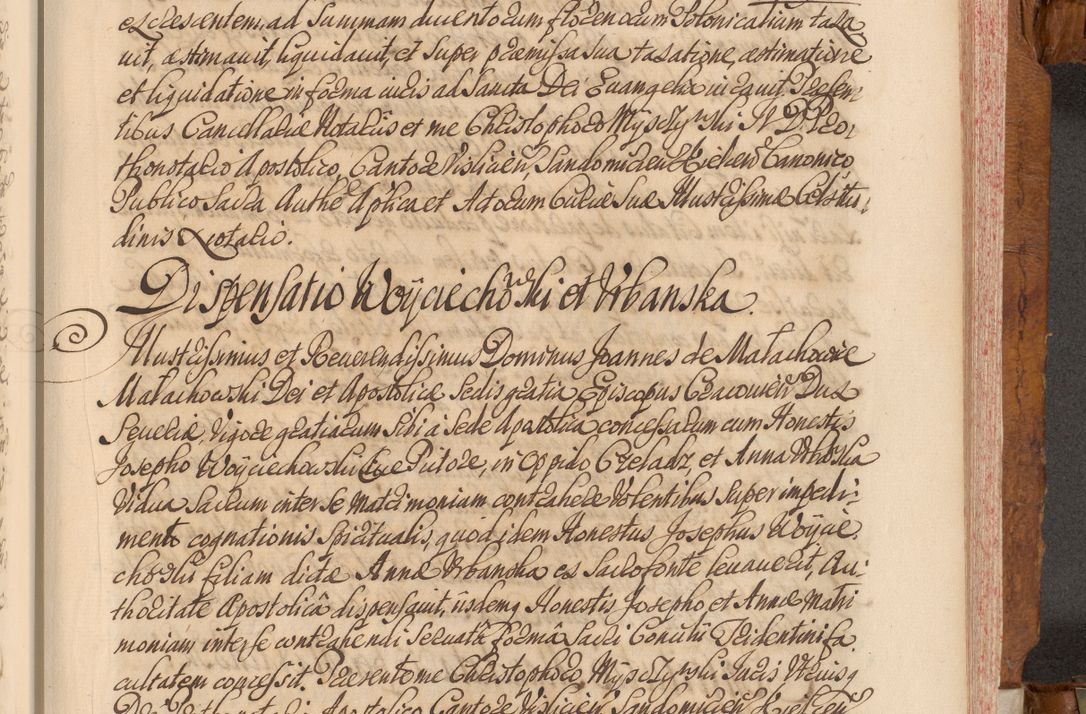 excrescentem, ad summam ducentorum florenorum Polonicalium taxa
uit, æstimauit, liquidauit, et super præmissa sua taxatione, æstimatione
et liquidatione in forma iuris ad Sancta Dei Euangelia iurauit. Præsen
tibus Cancellariæ Notariis et me Christophoro Mysczynski I V D Pro
thonotario Apostolico, Cantore Visliciens, Sandomirien Kielcen Canonico
Publico Sacra Authe Aplica et Actorum Curiæ Suæ Illustrissimæ Celsitu
dinis Notario.
Dispensatio Woyciechowski et Vrbanska.
Illustrissimus et Reuerendissimus Dominus Joannes de Małachowice
Małachowski Dei et Apostolicæ Sedis gratia Episcopus Cracouien Dux
Seueriæ, vigore gratiarum Sibi a Sede Apostolica concessarum cum Honestis
Josepho Woyciechowski Pictore, in oppido Czeladz, et Anna Vrbanska
Vidua Sacrum inter se Matrimonium contrahere volentibus super impedi
mento cognationis Spiritualis, quod idem Honestus Josephus Woycie
chowski filiam dictæ Annæ Vrbanska ex Sacro fonte leuauerit, Au
thoritate Apostolicâ dispensauit, iisdemq Honestis Josepho, et Annæ Matri
monium inter se contrahendi seruatâ formâ Sacri Concilii Tridentini fa
cultatem concessit. Præsente me Christophoro Mysczynski Juris Vtriusq
Prothonotario Apostolico Cantore Vislicien Sandomirien Kielcen